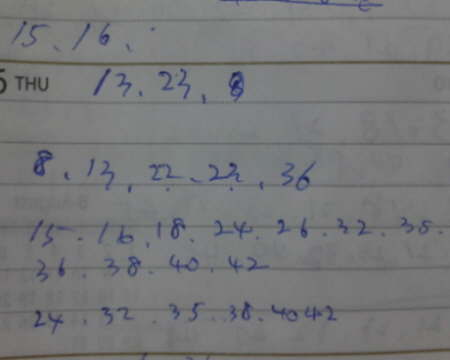 15. 16.
THU 13. 23. 8
8. 13. 22. 23. 36
15. 16. 18. 24. 26. 32. 35.
36. 38. 40. 42
24. 32. 35. 38. 40 42